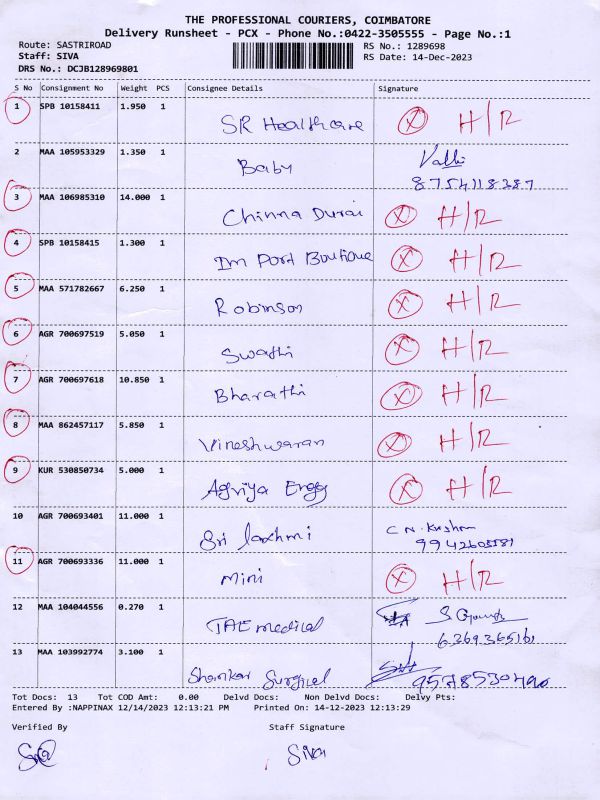 THE PROFESSIONAL COURIERS, COIMBATORE
Delivery Runsheet - PCX - Phone No.:0422-3505555 - Page No.:1
Route: SASTRIROAD RS No.: 1289698
Staff: SIVA RS Date: 14-Dec-2023
DRS No.: DCJB128969801
S No Consignment No Weight PCS Consignee Details Signature
1 SPB 10158411 1.950 1 SR Healthcare X H/R
2 MAA 105953329 1.350 1 Baby Valli
8754118387
3 MAA 106985310 14.000 1 Chinna Durai X H/R
4 SPB 10158415 1.300 1 Im Port Boutique X H/R
5 MAA 571782667 6.250 1 Robinson X H/R
6 AGR 700697519 5.050 1 Swathi X H/R
7 AGR 700697618 10.850 1 Bharathi X H/R
8 MAA 862457117 5.850 1 Vineshwaran X H/R
9 KUR 530850734 5.000 1 Agriya Engg X H/R
10 AGR 700693401 11.000 1 Sri laxhmi C N.
11 AGR 700693336 11.000 1 Mini X H/R
12 MAA 104044556 0.270 1 TAE medical S
6369365161
13 MAA 103992774 3.100 1 Shankar Surgical
Tot Docs: 13 Tot COD Amt: 0.00 Delvd Docs: Non Delvd Docs: Delvy Pts:
Entered By :NAPPINAX 12/14/2023 12:13:21 PM Printed On: 14-12-2023 12:13:29
Verified By Staff Signature
Siva